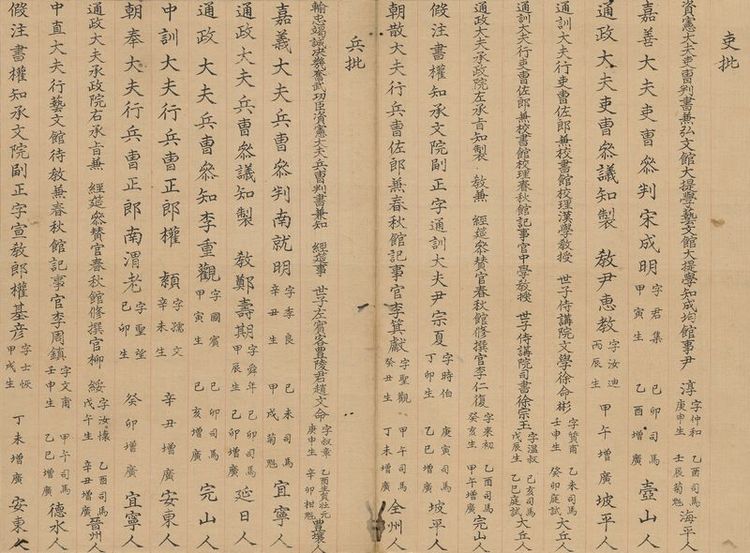 吏批
資憲大夫吏曹判書兼弘文館大提學藝文館大提學知成均館事尹 淳 字仲和 庚申生 乙酉司馬 壬辰菊魁 海平人
嘉善大夫吏曹參判宋成明 字君集 甲寅生 己卯司馬 乙酉增廣 壺山人
通政大夫吏曹參議知製 敎尹惠敎 字汝迪 丙辰生 甲午增廣 坡平人
通訓大夫行吏曹佐郎兼校書館校理漢學敎授 世子侍講院文學徐命彬 字質甫 壬申生 乙未司馬 癸卯庭試 大丘人
通訓大夫行吏曹佐郎兼校書館校理春秋館記事官中學敎授 世子侍講院司書徐宗玉 字溫叔 戊辰生 己亥司馬 乙巳庭試 大丘人
通政大夫承政院左承旨知製 敎兼 經筵參贊官春秋館修撰官李仁復 字來初 癸亥生 乙酉司馬 甲午增廣 完山人
假注書權知承文院副正字通訓大夫尹宗夏 字時伯 丁卯生 庚寅司馬 坡平人
朝散大夫行兵曹佐郎兼春秋館記事官李箕獻 字聖觀 癸丑生 甲午司馬 丁未增廣 全州人
兵批
輸忠竭誠決幾奮武功臣資憲大夫兵曹判書兼知 經筵事 世子左賓客豊陵君趙文命 字叔章 庚申生 乙酉司馬壯元 辛卯柑魁 豊壤人
嘉義大夫兵曹參判南就明 字季良 辛丑生 己未司馬 甲戌菊魁 宜寧人
通政大夫兵曹參議知製 敎鄭壽期 字舜年 甲辰生 己卯司馬 己卯增廣 延日人
通政大夫兵曹參知李重觀 字國賓 甲寅生 己亥增廣 完山人
中訓大夫行兵曹正郎權 頍 字孺文 辛未生 辛丑增廣 安東人
朝奉大夫行兵曹正郎南渭老 字聖望 己卯生 癸卯增廣 宜寧人
通政大夫承政院右承旨兼 經筵參贊官春秋館修撰官柳 綏 字汝懷 戊午生 乙酉司馬 辛丑增廣 晉州人
中直大夫行藝文館待敎兼春秋館記事官李周鎭 字文甫 壬申生 甲午司馬 乙巳增廣 德水人
假注書權知承文院副正字宣敎郎權基彦 字士恢 甲戌生 丁未增廣 安東人